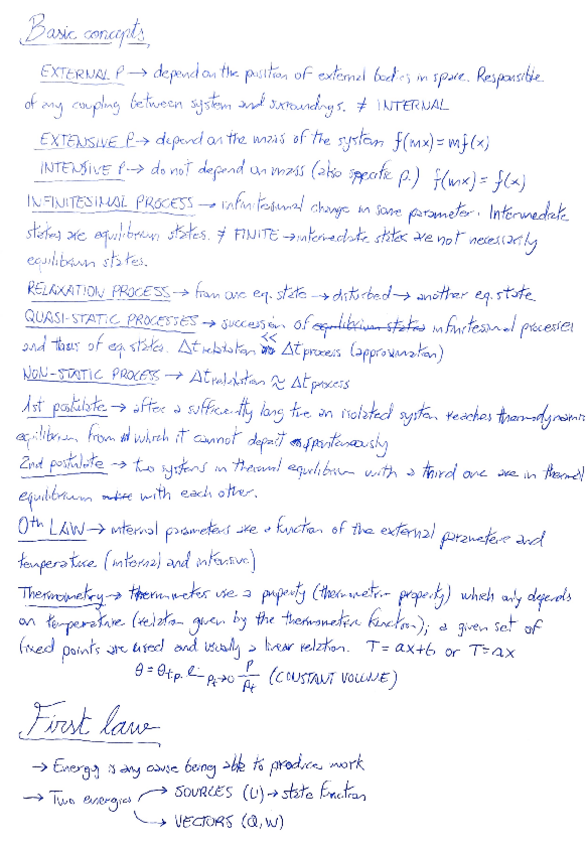 Basic concepts
EXTERNAL P → depend on the position of external bodies in space. Responsible
of any coupling between system and surroundings. ≠ INTERNAL
EXTENSIVE P → depend on the mass of the system f(mx)=mf(x)
INTENSIVE P → do not depend on mass (also specific p.) f(mx)=f(x)
INFINITESIMAL PROCESS → infinitesimal change in some parameter. Intermediate
states are equilibrium states. ≠ FINITE → intermediate states are not necessarily
equilibrium states.
RELAXATION PROCESS → from one eq. state → disturbed → another eq. state
QUASI-STATIC PROCESSES → succession of equilibrium states infinitesimal processes
and thus of eq. states. Δt relaxation << Δt process (approximation)
NON-STATIC PROCESS → Δt relaxation ≈ Δt process
1st postulate → after a sufficiently long time an isolated system reaches thermodynamic
equilibrium from which it cannot depart spontaneously
2nd postulate → two systems in thermal equilibrium with a third one are in thermal
equilibrium with each other.
0th LAW → internal parameters are a function of the external parameters and
temperature (internal and intensive)
Thermometry → thermometers use a property (thermometric property) which only depends
on temperature (relation given by the thermometric function); a given set of
fixed points are used and usually a linear relation. T=ax+b or T=ax
θ = θt.p. lim pt→0 P/Pt (CONSTANT VOLUME)
First law
→ Energy is any cause being able to produce work
→ Two energies → SOURCES (U) → state function
→ VECTORS (Q,W)